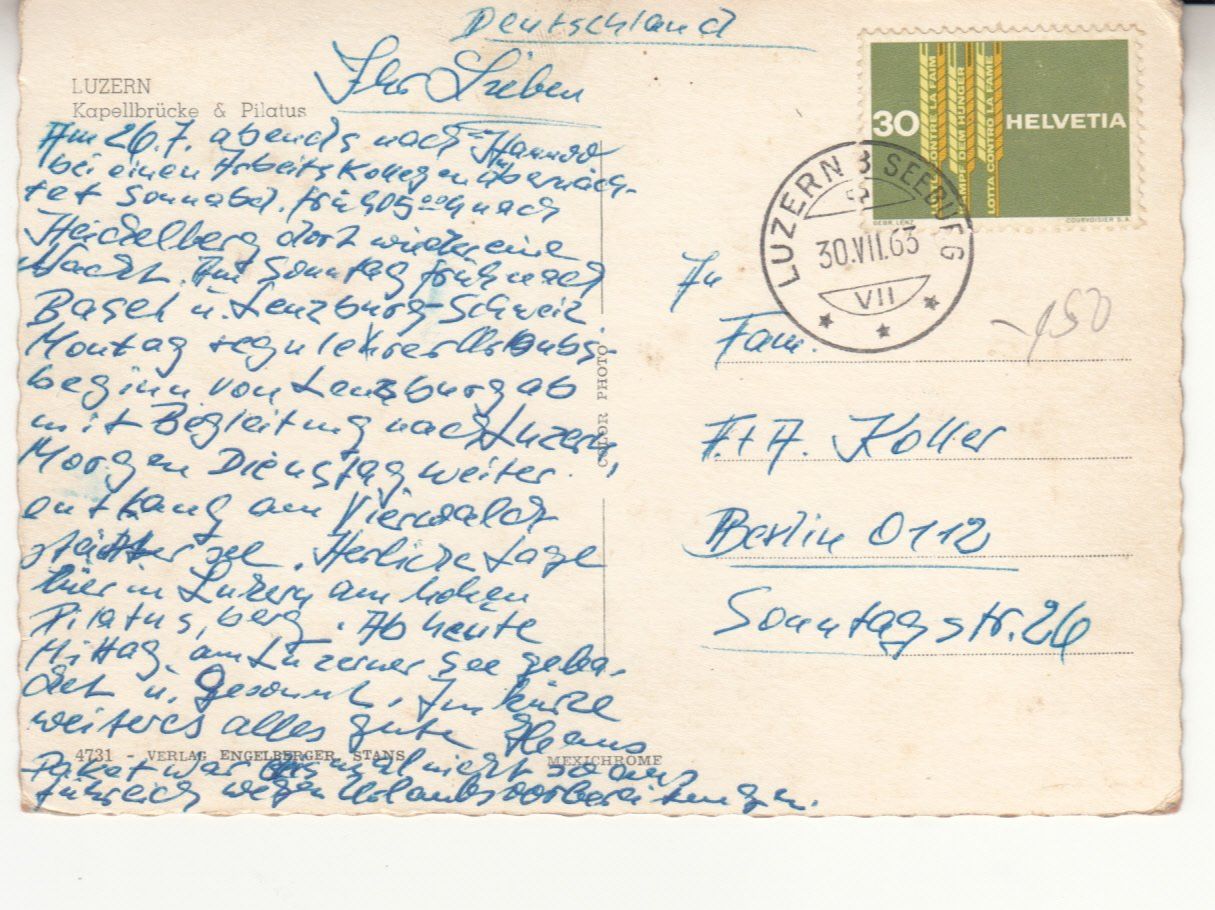 Deutschland
LUZERN
Kapellbrücke & Pilatus
Ihr Lieben
Am 26.7. abends nach Hannov
bei einen Arbeitskollegen übernach-
tet Sonnabd. früh 05⁰⁰ nach
Heidelberg dort wieder eine
Nacht. Am Sonntag früh nach
Basel u. Lenzburg-Schweiz
Montag regulehrer Urlaubs-
beginn von Lenzburg ab
mit Begleitung nach Luzern,
Morgen Dienstag weiter
entlang am Vierwald
stätter see. Herliche Tage
hier in Luzern am hohen
Pilatus, berg. Ab heute
Mittag am Luzerner See geba-
det u. Gesonnt. In kürze
weiteres alles gute Hanns
4731 - VERLAG ENGELBERGER STANS
MEXICHROME
Paket war mal nicht so
führlich wegen Urlaubsvorbereitungen.
COLOR PHOTO
30
HELVETIA
LUTTE CONTRE LA FAIM
KAMPF DEM HUNGER
LOTTA CONTRO LA FAME
GEBR. LENZ
COURVOISIER S.A.
LUZERN 3 SEEBURG
30.VII.63
VII
150
An
Fam.
F.+A. Koller
Berlin 0112
Sonntagstr. 26